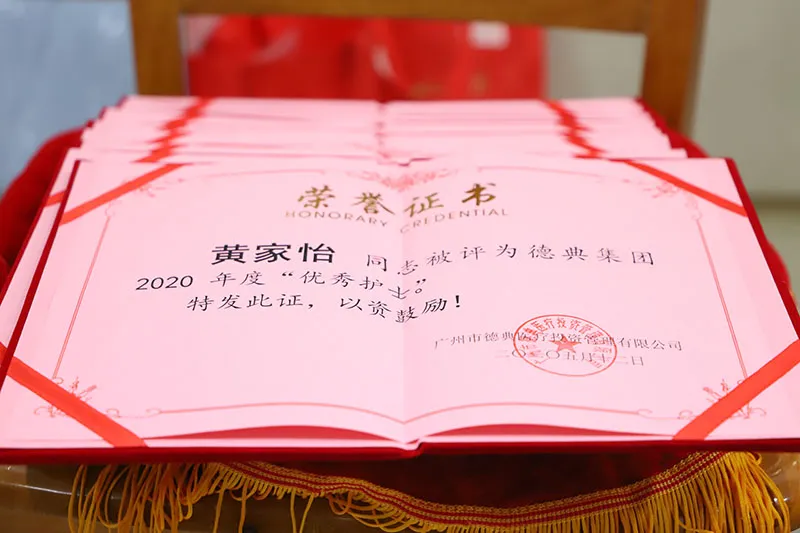 荣誉证书
HONORARY CREDENTIAL
黄家怡 同志被评为德典集团
2020 年度“优秀护士”。
特发此证，以资鼓励！
广州市德典医疗投资管理有限公司
二〇二〇五月十二日